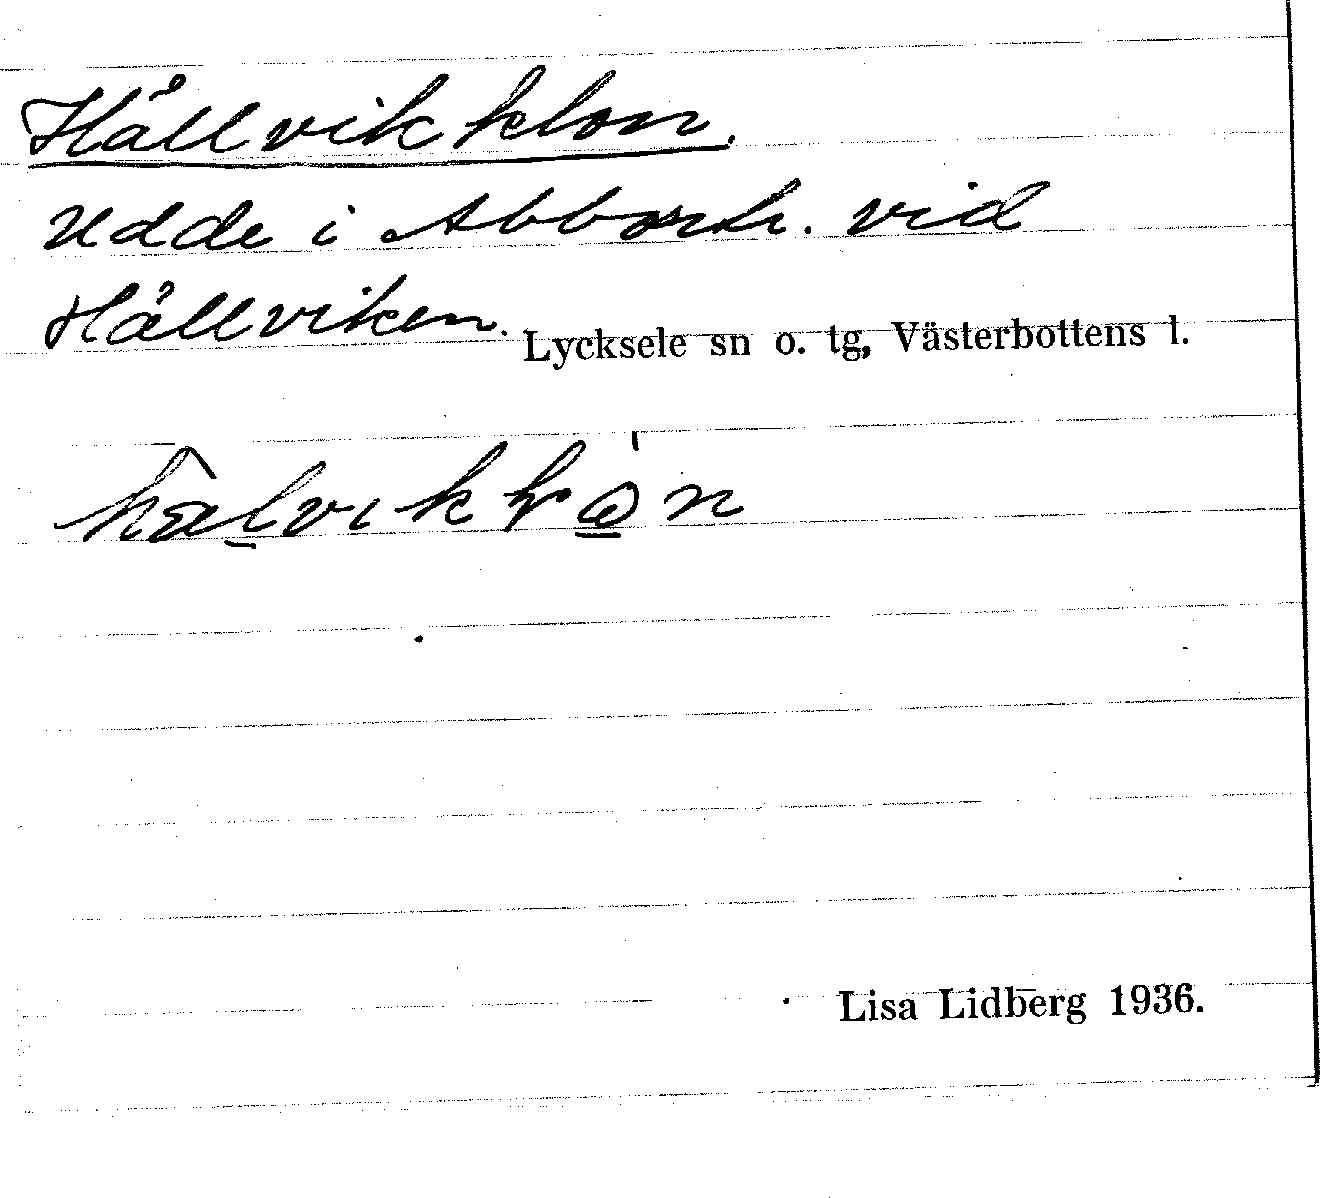 Hållvikklon.
Udde i Abborrtr. vid
Hållviken.
Lycksele sn o. tg, Västerbottens l.
Lisa Lidberg 1936.